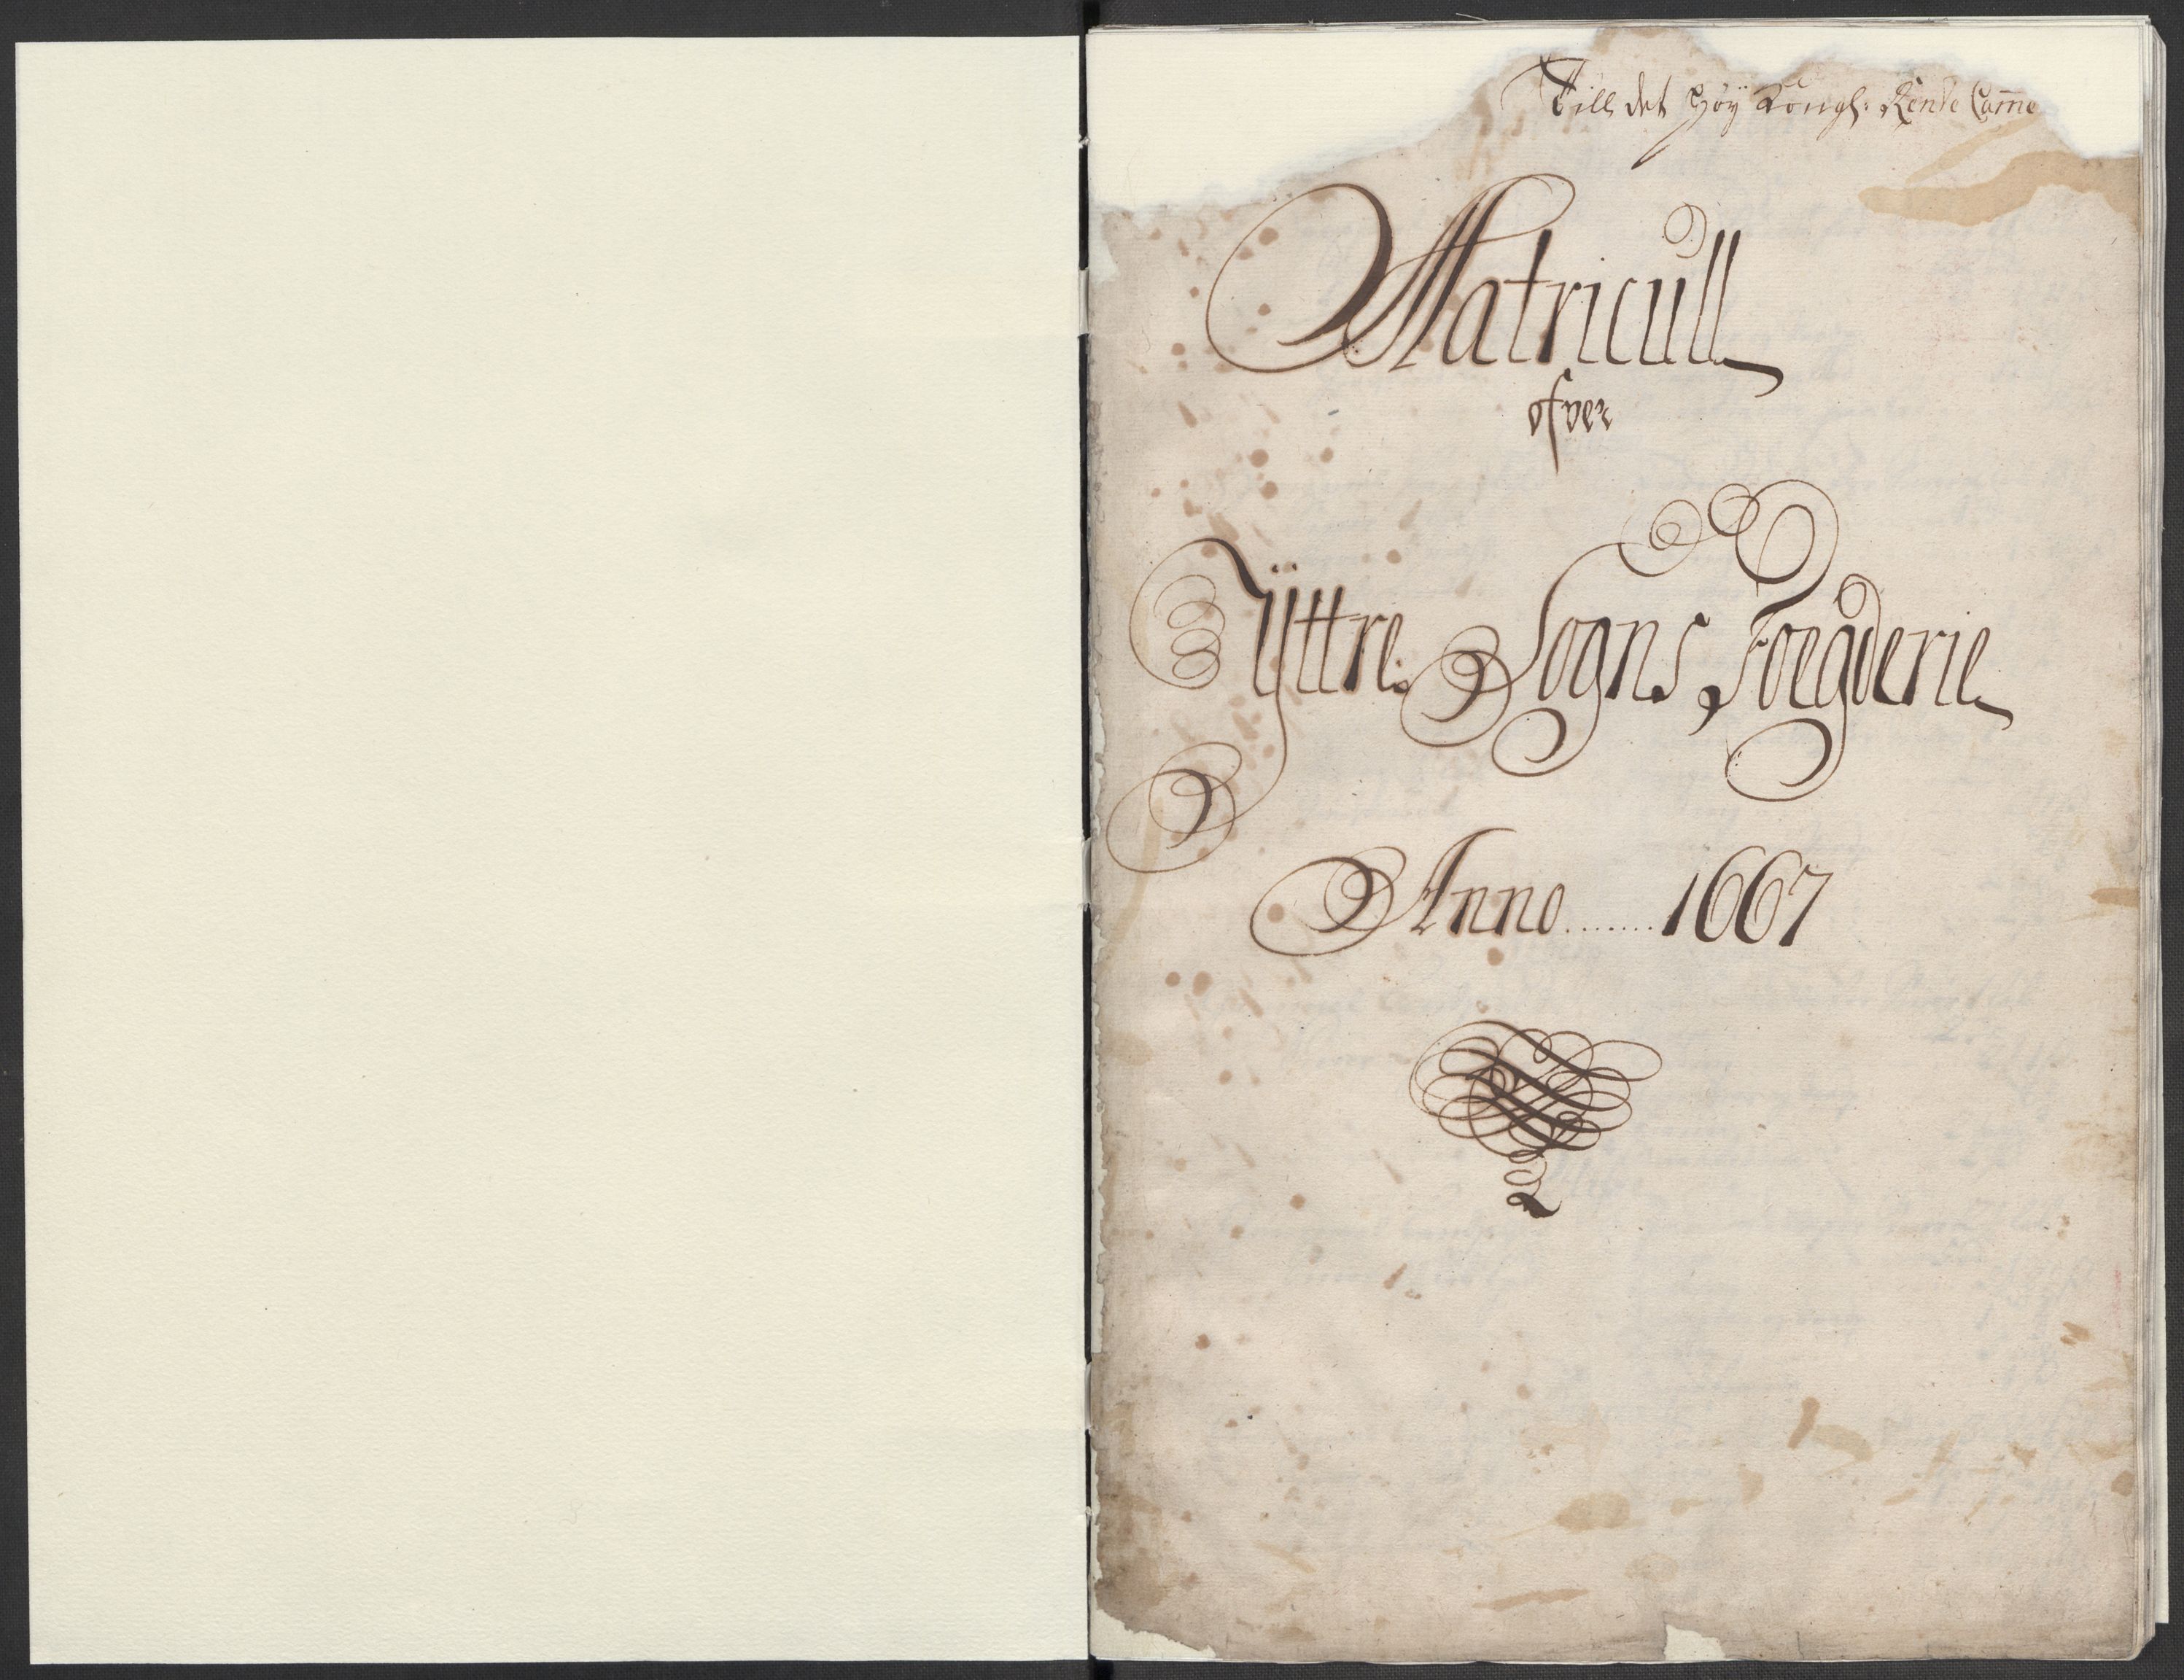 Till det Høy Kongl: Rente Cam̄e
Matricull
ofver
Ÿttre Sogns Foegderie
Anno ....... 1667